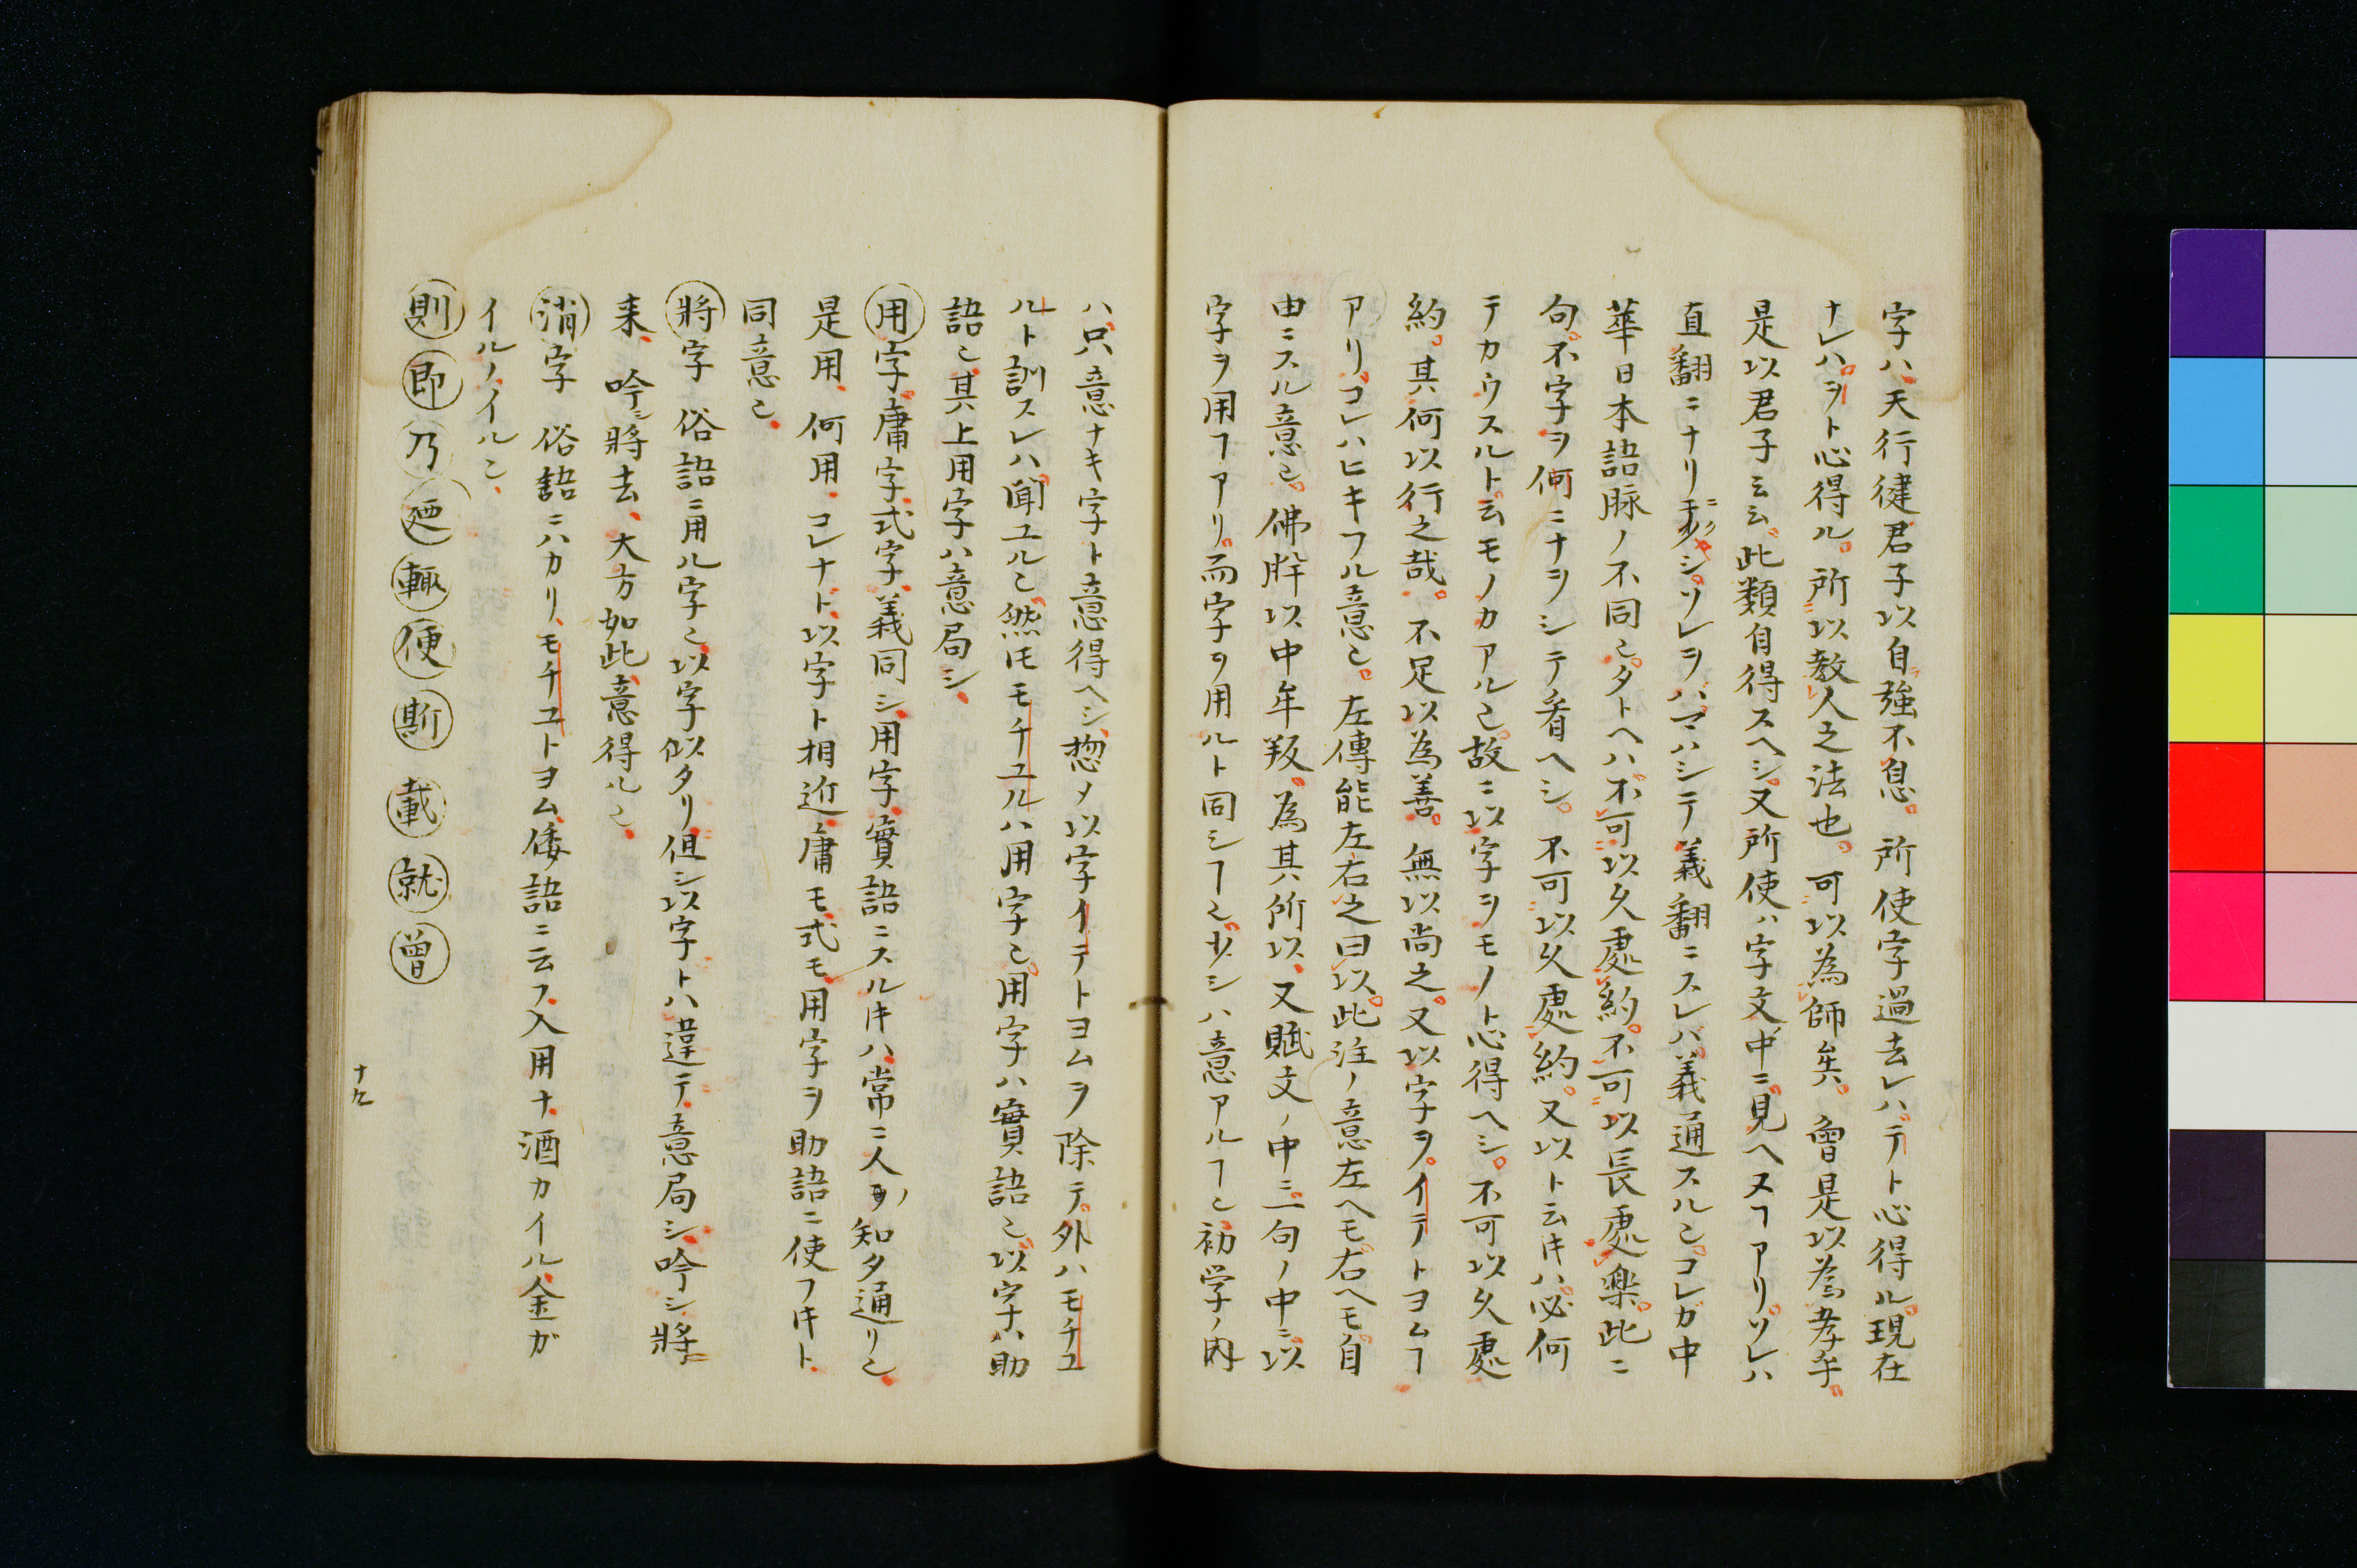 字ハ天行健君子以自強不息。所使字過去レハテト心得ル。現在
ナレハヲト心得ル。所以教人之法也。可以為師矣。曾是以為孝乎。
是以君子云云此類自得スヘシ又所使ハ字文中ニ見ヘヌヿアリ。ソレハ
直翻ニナリニクシ。ソレヲハマハシテ義翻ニスレバ義通スルヿ。コレガ中
華日本語脉ノ不同也。タトヘハ不可以久處約。不可以長處楽。此二
句。不字ヲ何ニナヲシテ看ヘシ。不可以久處約。又以ト云ㇳキハ必何
テカウスルト云モノカアル也。故ニ以字ヲモノト心得ヘシ。不可以久處
約。其何以行之哉。不足以為善。無以尚之。又以字ヲ。イテトヨムヿ
アリ。コレハヒキフル意也。左傳能左右之曰以。此注ノ意左ヘモ右ヘモ自
由ニスル意也。佛肸以中牟叛。為其所以、又賦文ノ中ニ二句ノ中ニ以
字ヲ用ヿアリ。而字ヲ用ルト同シヿ也。少シハ意アルヿ也初学ノ内
ハ只意ナキ字ト意得ヘシ惣メ以字イテトヨムヲ除テ外ハモチユ
ルト訓スレハ聞ユル也然ㇳモモチユルハ用字也用字ハ實語也以字ハ助
語也其上用字ハ意局シ
用字庸字式字義同シ用字實語ニスルㇳキハ常ニ人ノ知タ通リ也
是用、何用、コレナト以字ト相近庸モ式モ用字ヲ助語ニ使フㇳキト
同意也
將字 俗語ニ用ル字也以字似タリ但シ以字トハ違テ意局シ吟シ將
来、吟シ將去、大方如此意得ル也
消字 俗語ニハカリモチユトヨム倭語ニ云フ入用ナ酒カイル金ガ
イルノイル也
則 即 乃 廼 輙 便 斯 載 就 曾
十九